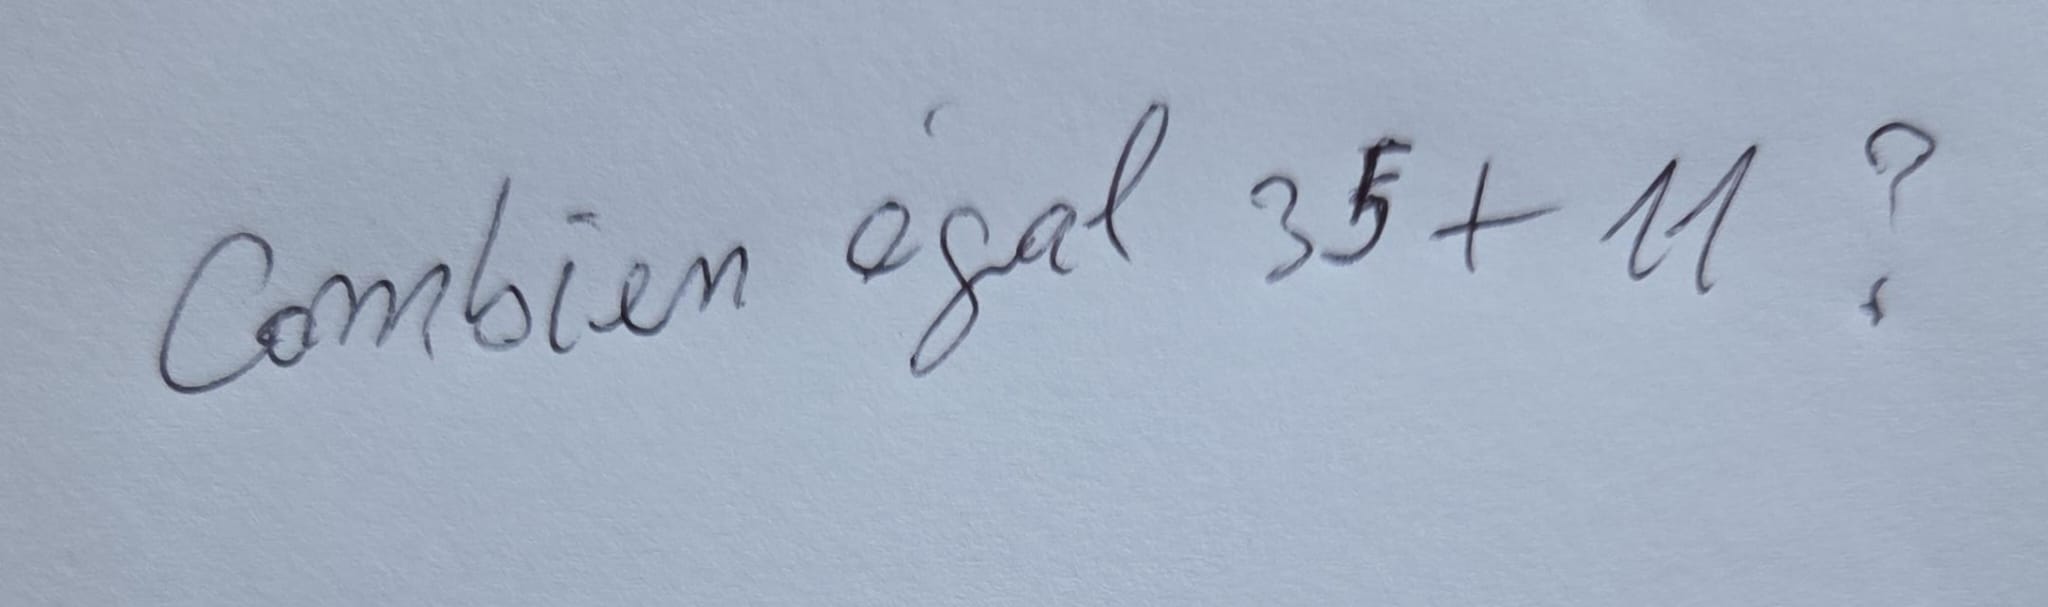 Combien égal 35 + 11 ?